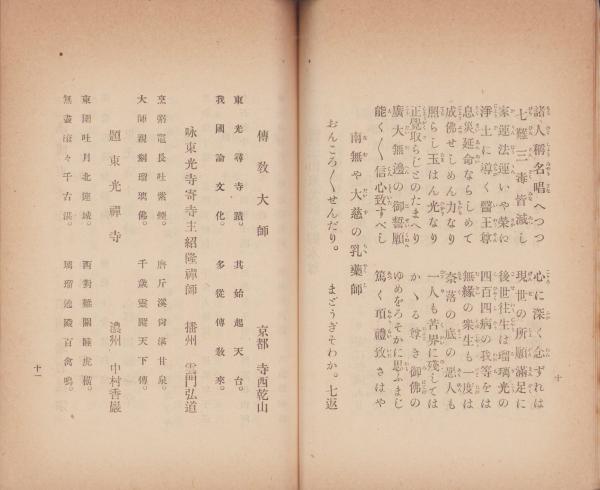 諸人稱名唱へつつ　心に深く念ずれは
七難三毒皆滅し　現世の所願滿足に
家運法運いや榮に　後世往生は瑠璃光の
淨土に導く醫王尊　四百四病の我等をは
息災延命ならしめて　無緣の衆生も一度は
成佛せしめん力なり　奈落の底の惡人も
照らし玉はん光なり　一人も苦界に殘しては
正覺取らじとのたまへり　かゝる尊き御佛の
廣大無邊の御誓願　ゆめをろそかに思ふまじ
能く〳〵信心致すべし　篤く頂禮致さはや
南無や大慈の乳藥師
おんころ〳〵せんだり。　まどうぎそわか。七返
十
傳敎大師　京都　寺西乾山
東光尋寺蹟。　其始起天台。
我國論文化。　多從傳敎來。
咏東光寺寄寺主紹隆禪師　播州　雲門弘道
大師親刻瑠璃佛。　千歲靈龕天下傳。
題東光禪寺　濃州　中村香巖
東閣吐月北連城。
千古湛。　瑠璃池殿百禽鳴。
十一